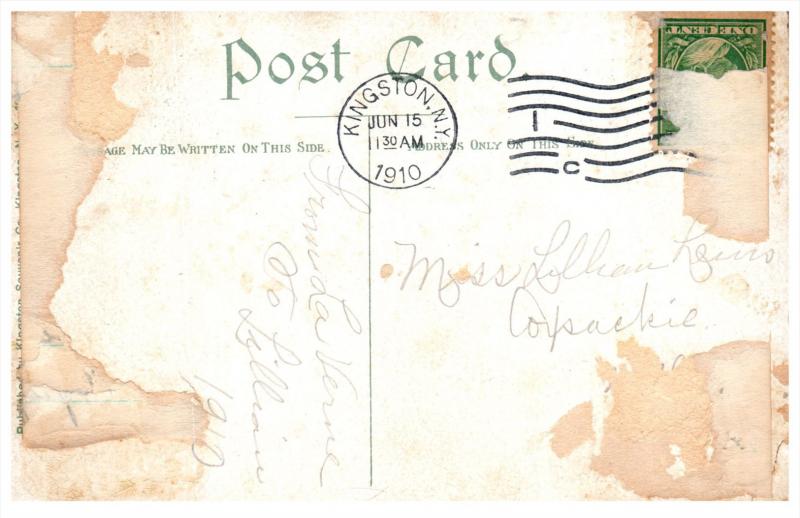 Post Card.
KINGSTON, N.Y.
JUN 15
11 30 AM
1910
1
C
ONE CENT
AGE MAY BE WRITTEN ON THIS SIDE.
ADDRESS ONLY ON THIS SIDE.
From La Verne
To Lillian
1910
Miss Lillian Lewis
Coxsackie
Published by Kingston Souvenir Co. Kingston, N.Y.